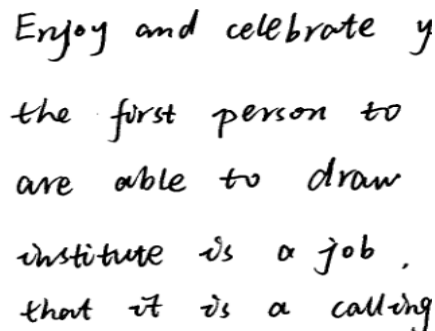 Enjoy and celebrate y
the first person to
are able to draw
institute is a job.
that it is a calling